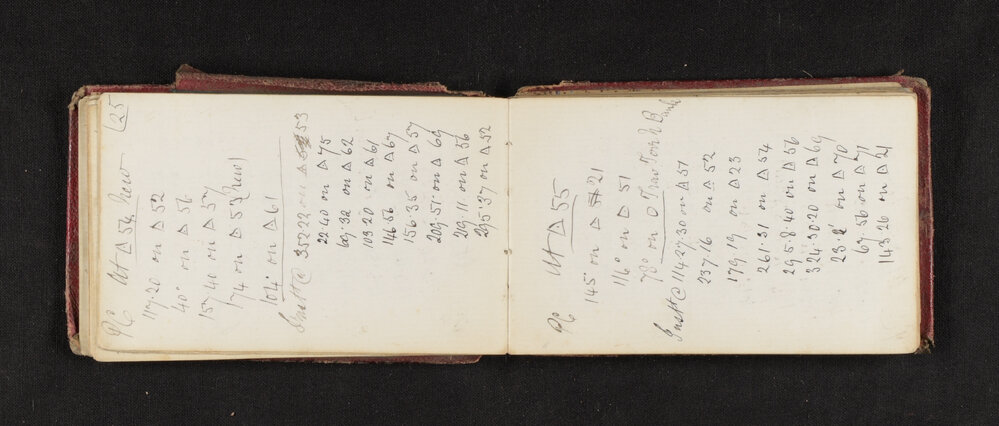 25
At △ 54 New
117.20 on △ 52
40° on △ 56
157.40 on △ 57
174 on △ 53 New
104° on △ 61
Inst @ 352.22 on △ 53
22.40 on △ 75
69.32 on △ 62
103.20 on △ 61
146.56 on △ 67
156.35 on △ 57
209.51 on △ 69
219.11 on △ 56
295.37 on △ 52
At △ 55
145° on △ 21
116° on △ 51
78° on
Inst @ 114.27.30 on △ 51
237.16 on △ 52
179.19 on △ 23
261.31 on △ 54
295.8.40 on △ 56
324.30.20 on △ 69
23.2' on △ 70
67.56 on △ 71
143.26 on △ 21